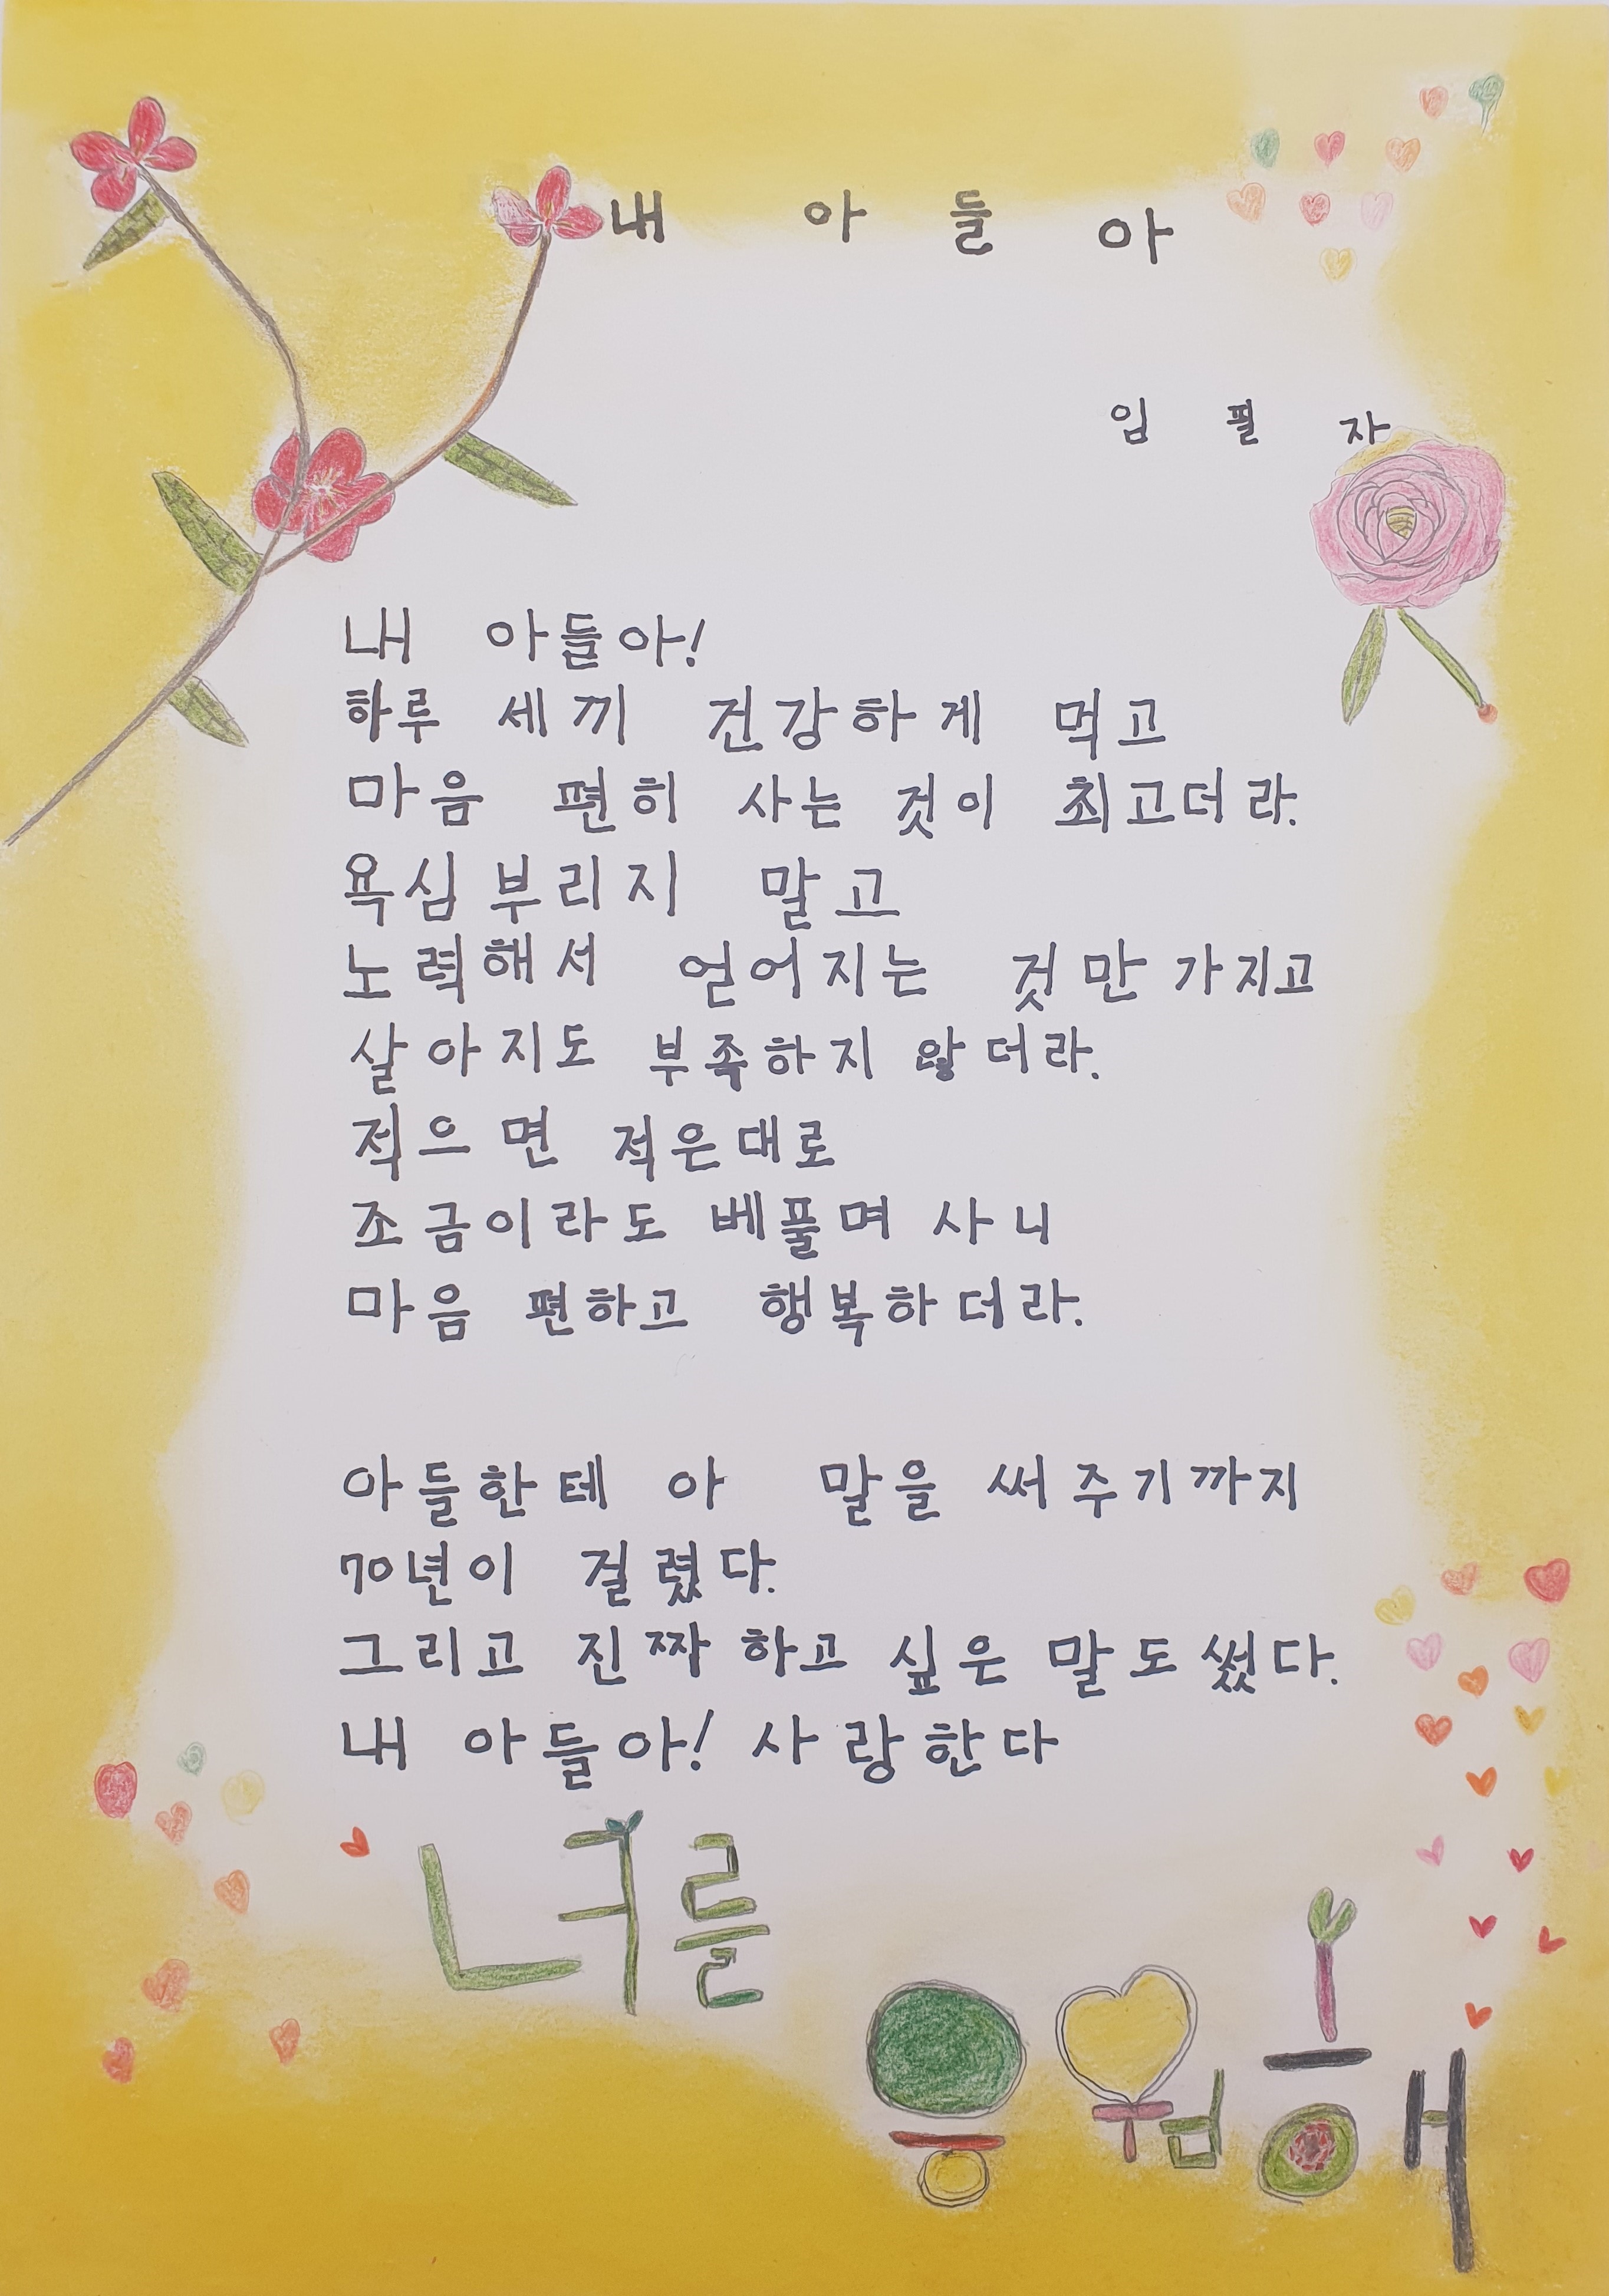 내 아들아
임필자
내 아들아!
하루 세끼 건강하게 먹고
마음 편히 사는 것이 최고더라.
욕심부리지 말고
노력해서 얻어지는 것만 가지고
살아지도 부족하지 않더라.
적으면 적은대로
조금이라도 베풀며 사니
마음 편하고 행복하더라.
아들한테 아 말을 써주기까지
70년이 걸렸다.
그리고 진짜 하고 싶은 말도 썼다.
내 아들아! 사랑한다
너를
응원해